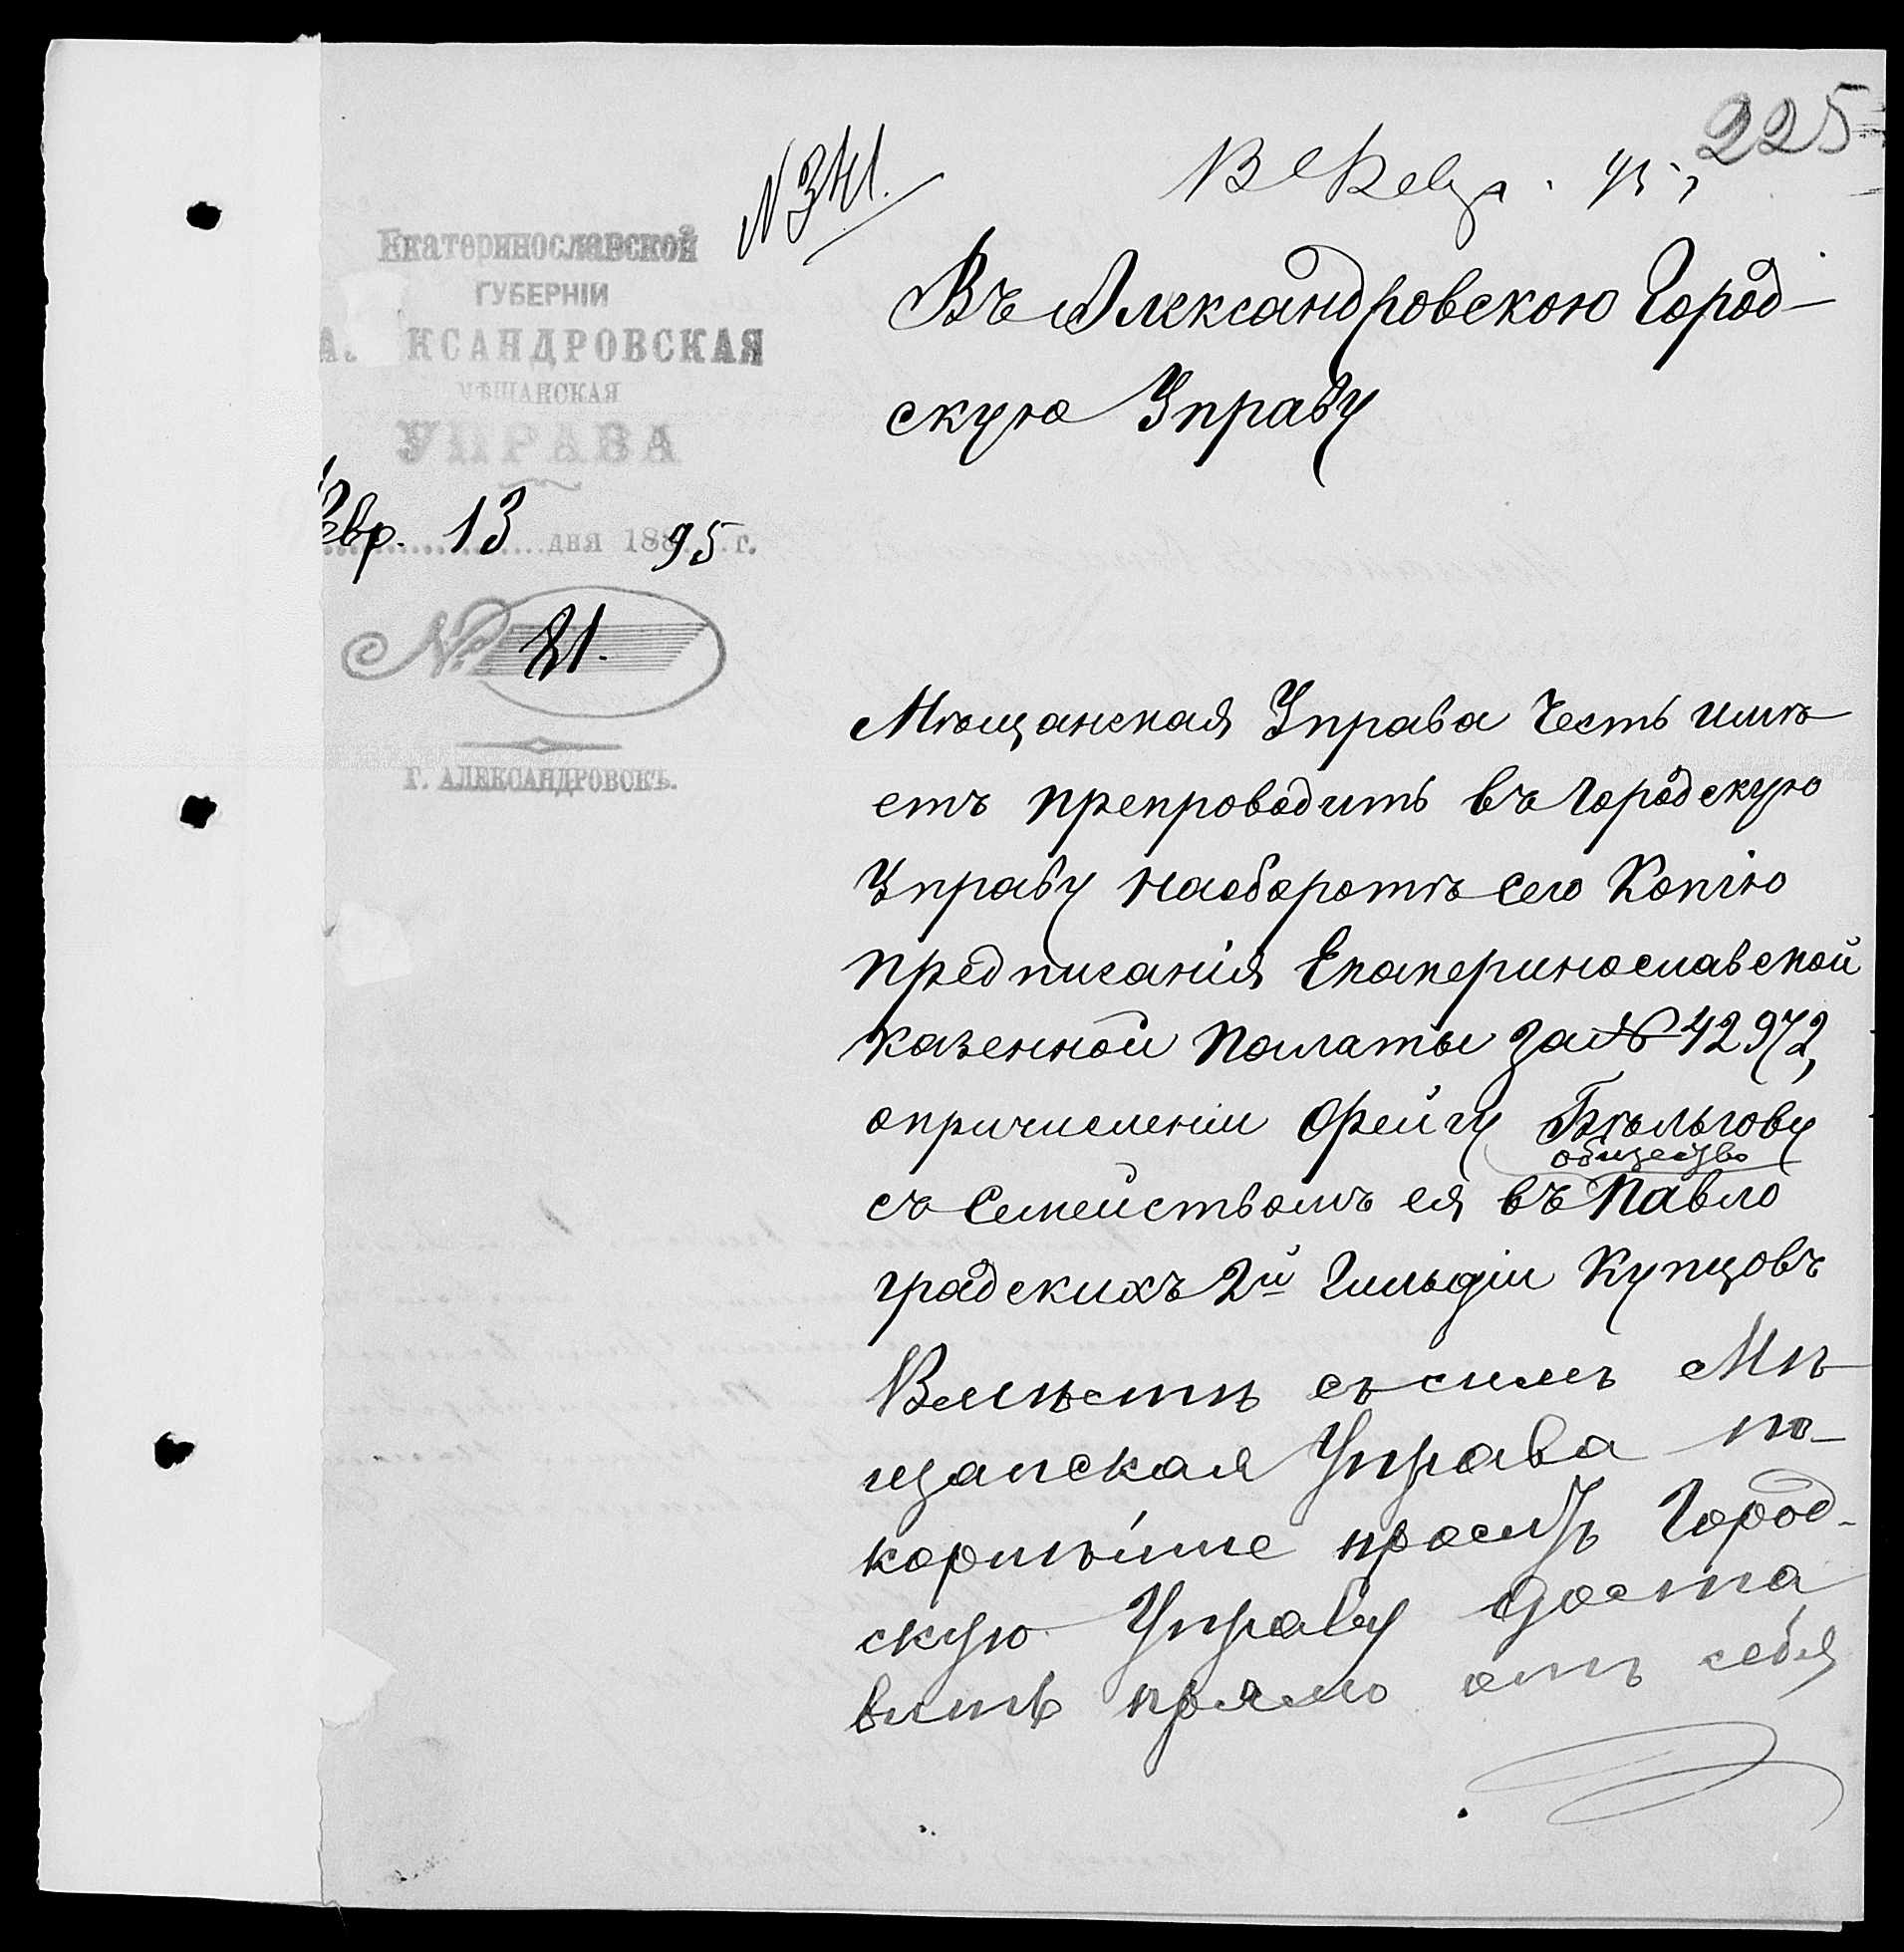 225
N 341.
Екатеринославской
ГУБЕРНІИ
А.КСАНДРОВСКАЯ
МѢЩАНСКАЯ
УПРАВА
евр. 13 дня 1895 г.
№ 81.
Г. АЛЕКСАНДРОВСКЪ.
Въ Александровскою Город-
скую Управу
Мѣщанская Управа Честь имѣ-
етъ препроводить въ городскую
Управу наоборотѣ сего Копію
предписанія Екатеринославской
казенной палаты за № 42972,
опричисленіи Фейгу Бѣльгову
общество
съ Семействомъ ея въ Павло
градскихъ 2й Гильдіи Купцовъ
Вмѣстѣ съ симъ Мѣ-
щанская Управа по-
корнѣйше проситъ Город-
скую Управу доста
вить прямо отъ себя